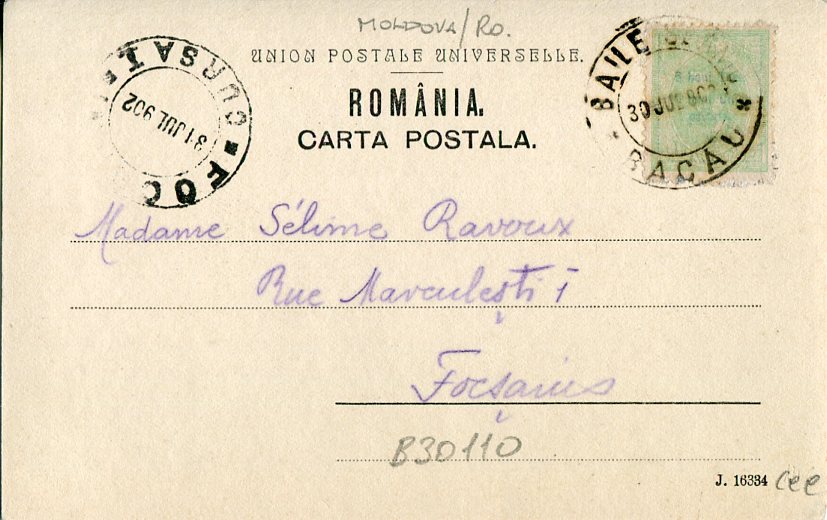 MOLDOVA/RO.
UNION POSTALE UNIVERSELLE.
ROMÂNIA.
CARTA POSTALA.
CURSA I
31 JUL 902
FOC
BAILE
30 JUL
BACAU
Madame Sélime Ravoux
Rue Marculești 1
Focșanis
B30110
J. 16334
cee